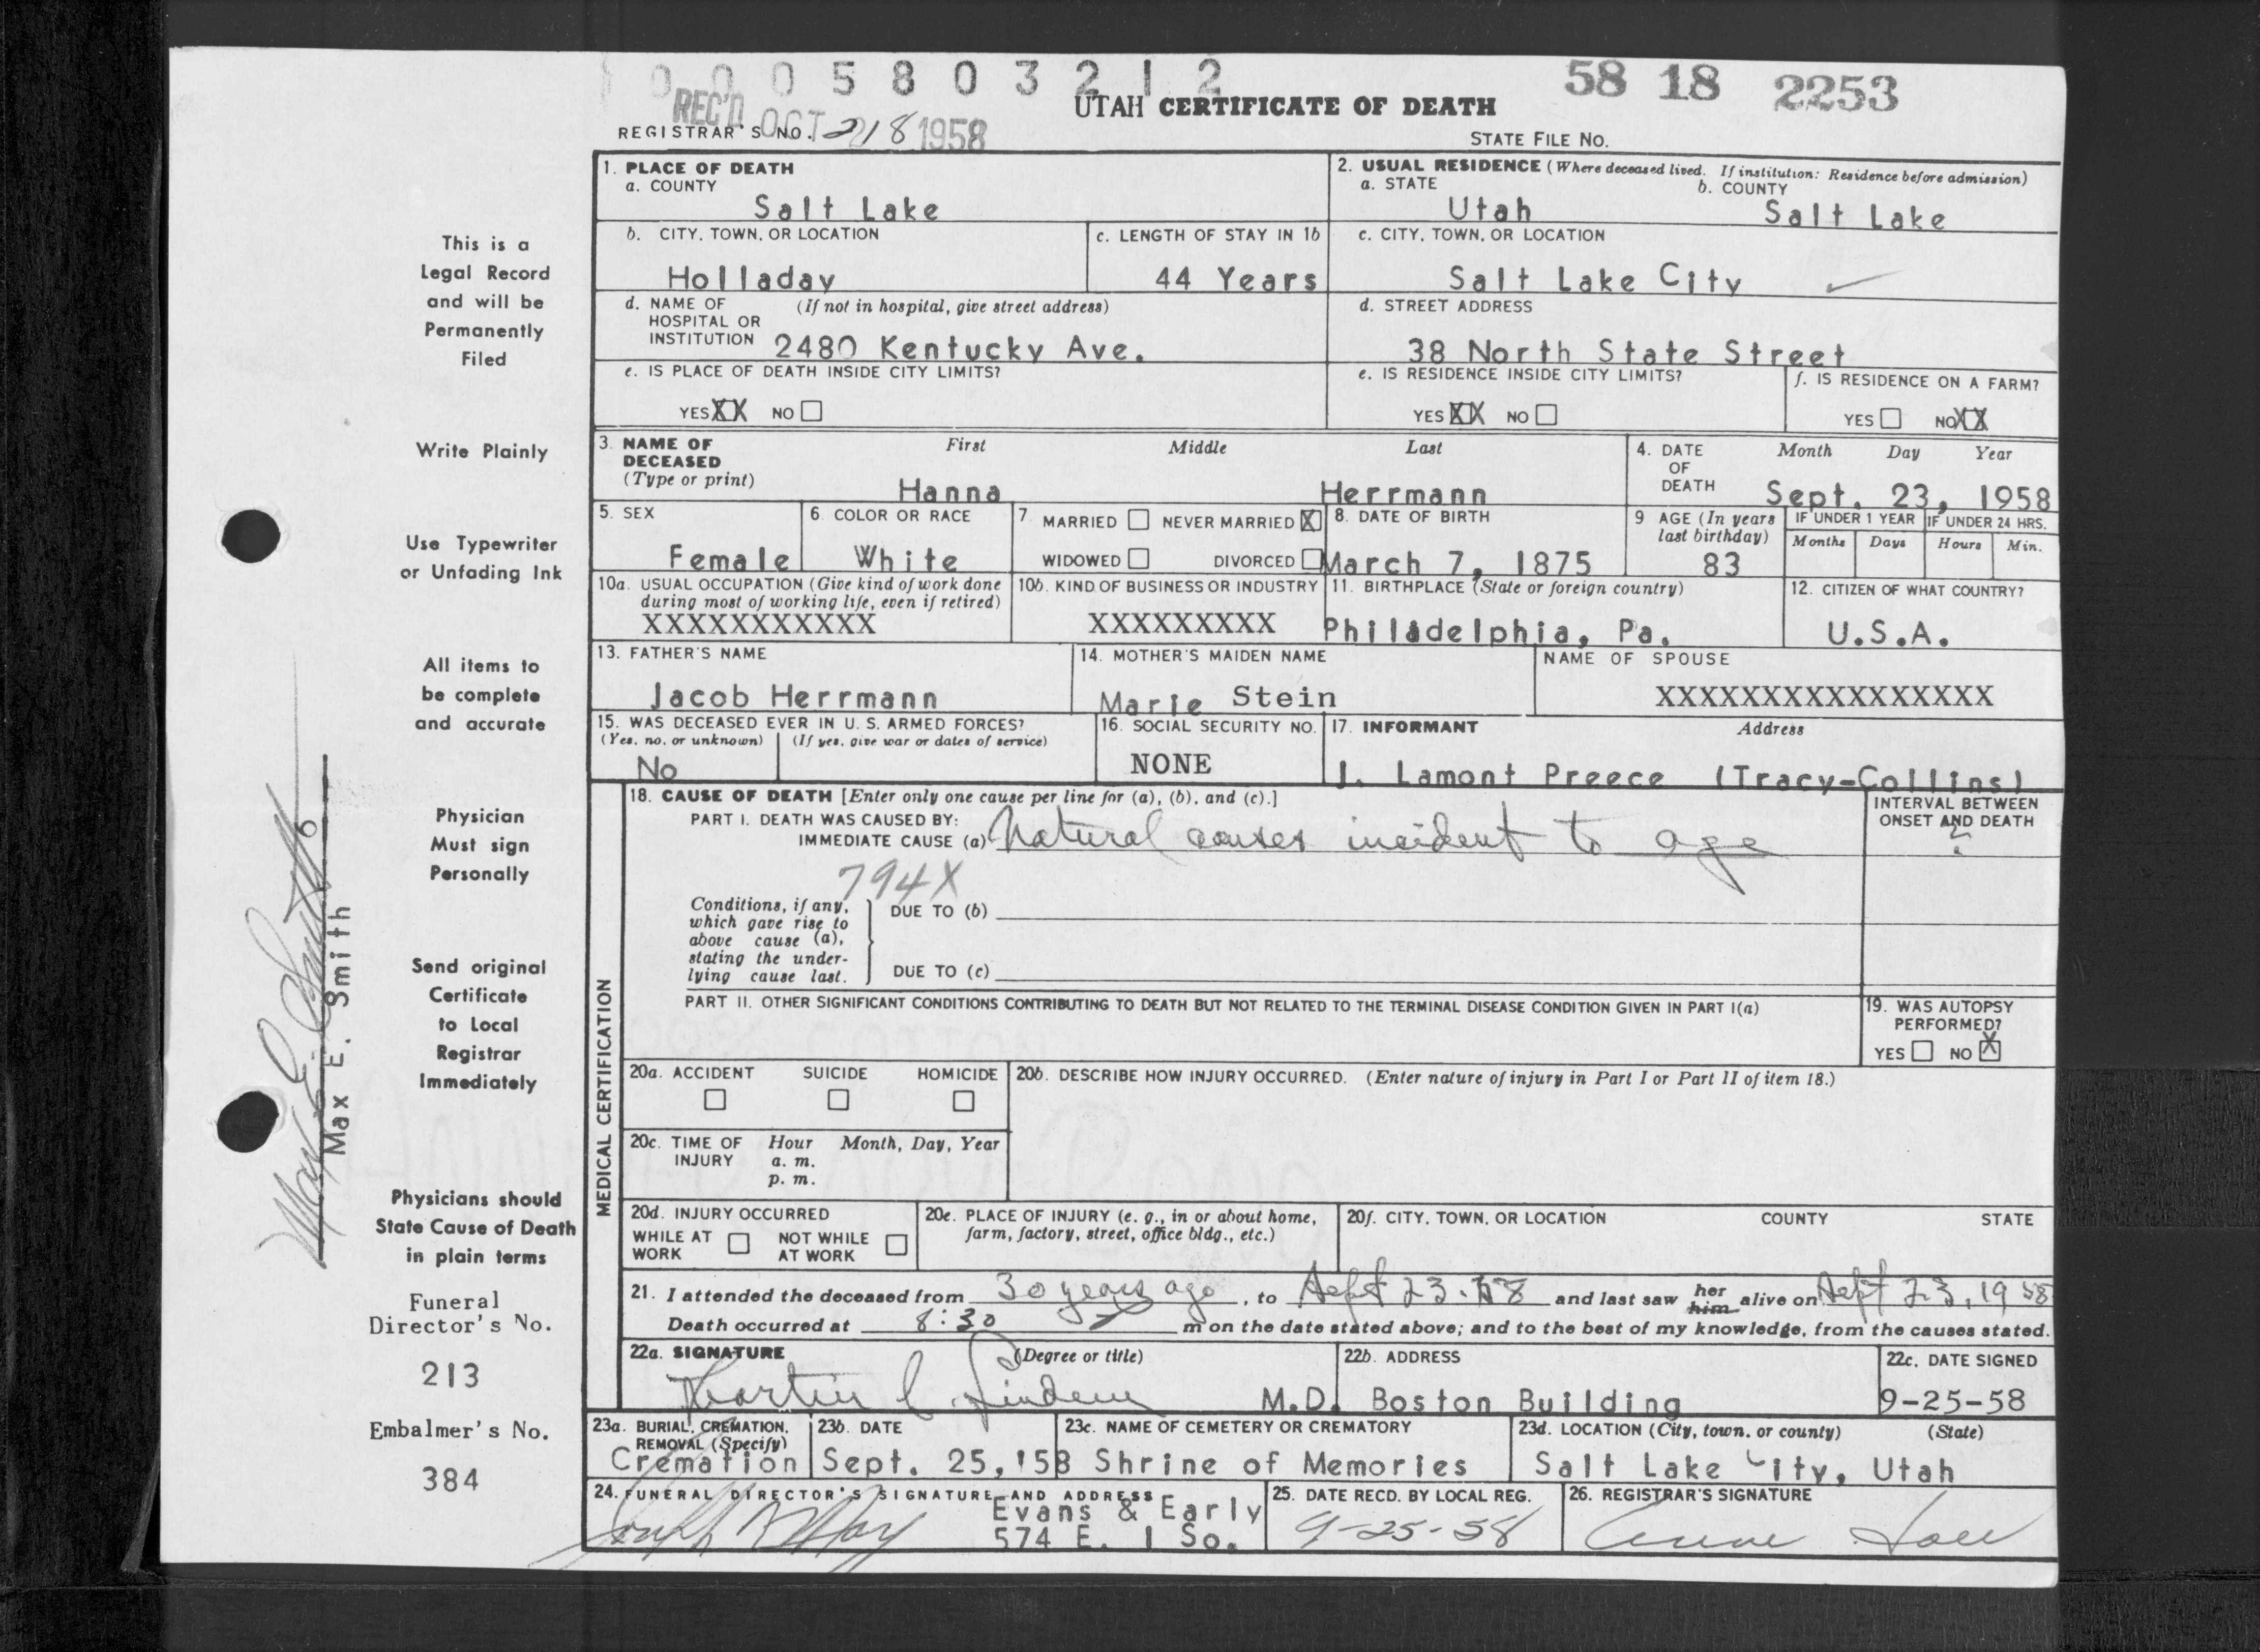 0 0 0 5 8 0 3 2 1 2
58 18 2253
REC'D OCT 1958
UTAH CERTIFICATE OF DEATH
REGISTRAR'S NO. 218
STATE FILE NO.
1. PLACE OF DEATH
a. COUNTY
Salt Lake
2. USUAL RESIDENCE (Where deceased lived. If institution: Residence before admission)
a. STATE b. COUNTY
Utah Salt Lake
b. CITY, TOWN, OR LOCATION
Holladay
c. LENGTH OF STAY IN 1b
44 Years
c. CITY, TOWN, OR LOCATION
Salt Lake City
d. NAME OF (If not in hospital, give street address)
HOSPITAL OR
INSTITUTION 2480 Kentucky Ave.
d. STREET ADDRESS
38 North State Street
e. IS PLACE OF DEATH INSIDE CITY LIMITS?
YES XX NO
e. IS RESIDENCE INSIDE CITY LIMITS?
YES XX NO
f. IS RESIDENCE ON A FARM?
YES NO XX
3. NAME OF DECEASED (Type or print)
First Middle Last
Hanna Herrmann
4. DATE OF DEATH
Month Day Year
Sept. 23, 1958
5. SEX
Female
6. COLOR OR RACE
White
7. MARRIED NEVER MARRIED X
WIDOWED DIVORCED
8. DATE OF BIRTH
March 7, 1875
9 AGE (In years last birthday)
83
IF UNDER 1 YEAR IF UNDER 24 HRS.
Months Days Hours Min.
10a. USUAL OCCUPATION (Give kind of work done
during most of working life, even if retired)
XXXXXXXXXXX
10b. KIND OF BUSINESS OR INDUSTRY
XXXXXXXXX
11. BIRTHPLACE (State or foreign country)
Philadelphia, Pa.
12. CITIZEN OF WHAT COUNTRY?
U.S.A.
13. FATHER'S NAME
Jacob Herrmann
14. MOTHER'S MAIDEN NAME
Marie Stein
NAME OF SPOUSE
XXXXXXXXXXXXXXXX
15. WAS DECEASED EVER IN U. S. ARMED FORCES?
(Yes, no, or unknown) (If yes, give war or dates of service)
No
16. SOCIAL SECURITY NO.
NONE
17. INFORMANT Address
J. Lamont Preece (Tracy-Collins)
MEDICAL CERTIFICATION
18. CAUSE OF DEATH [Enter only one cause per line for (a), (b), and (c).]
PART I. DEATH WAS CAUSED BY:
IMMEDIATE CAUSE (a) Natural causes incident to age
INTERVAL BETWEEN
ONSET AND DEATH
?
794X
Conditions, if any,
which gave rise to
above cause (a),
stating the under-
lying cause last.
DUE TO (b)
DUE TO (c)
PART II. OTHER SIGNIFICANT CONDITIONS CONTRIBUTING TO DEATH BUT NOT RELATED TO THE TERMINAL DISEASE CONDITION GIVEN IN PART I(a)
19. WAS AUTOPSY
PERFORMED?
YES NO X
20a. ACCIDENT SUICIDE HOMICIDE
20b. DESCRIBE HOW INJURY OCCURRED. (Enter nature of injury in Part I or Part II of item 18.)
20c. TIME OF INJURY Hour Month, Day, Year
a. m.
p. m.
20d. INJURY OCCURRED
WHILE AT WORK NOT WHILE AT WORK
20e. PLACE OF INJURY (e. g., in or about home,
farm, factory, street, office bldg., etc.)
20f. CITY, TOWN, OR LOCATION COUNTY STATE
21. I attended the deceased from 30 years ago, to Sept 23. 58 and last saw her him alive on Sept 23, 1958
Death occurred at 8:30 m on the date stated above; and to the best of my knowledge, from the causes stated.
22a. SIGNATURE (Degree or title)
Martin C. Lindem M.D.
22b. ADDRESS
Boston Building
22c. DATE SIGNED
9-25-58
23a. BURIAL, CREMATION,
REMOVAL (Specify)
Cremation
23b. DATE
Sept. 25,'58
23c. NAME OF CEMETERY OR CREMATORY
Shrine of Memories
23d. LOCATION (City, town, or county) (State)
Salt Lake City, Utah
24. FUNERAL DIRECTOR'S SIGNATURE AND ADDRESS
Evans & Early
574 E. 1 So.
25. DATE RECD. BY LOCAL REG.
9-25-58
26. REGISTRAR'S SIGNATURE
This is a
Legal Record
and will be
Permanently
Filed
Write Plainly
Use Typewriter
or Unfading Ink
All items to
be complete
and accurate
Physician
Must sign
Personally
Send original
Certificate
to Local
Registrar
Immediately
Physicians should
State Cause of Death
in plain terms
Funeral
Director's No.
213
Embalmer's No.
384
Max E. Smith
Max E. Smith